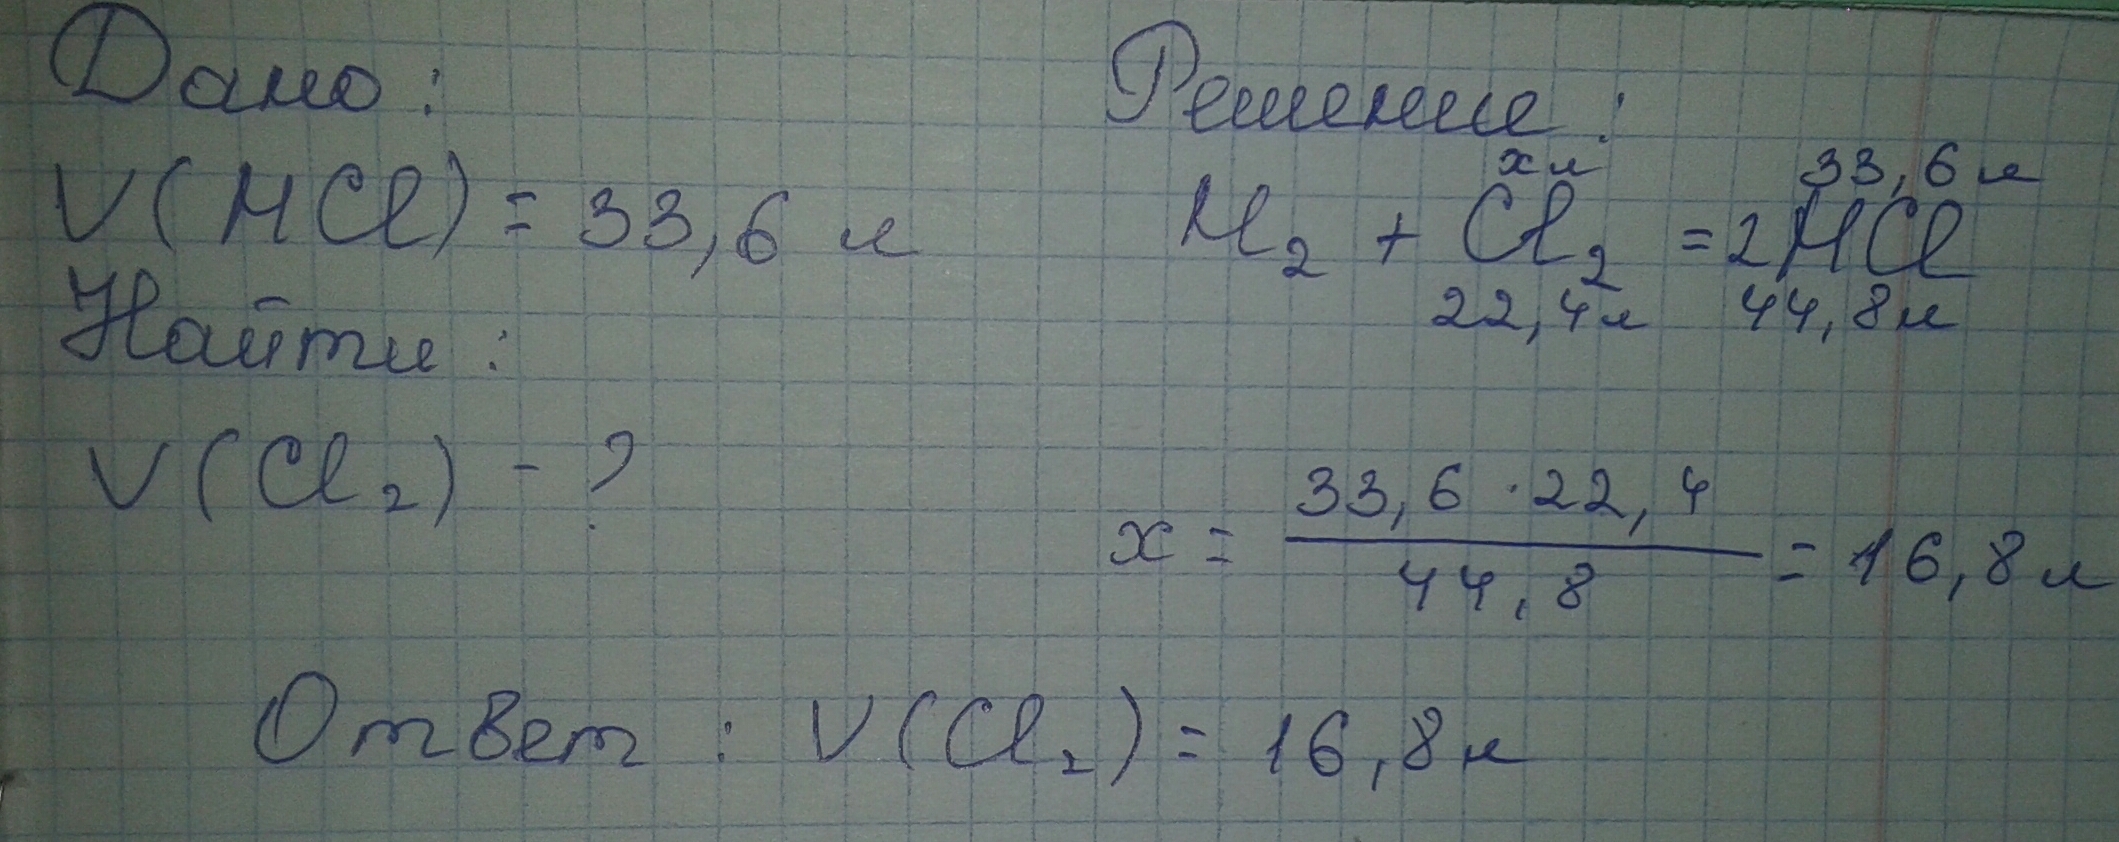 Дано:
V(HCl) = 33,6 л
Найти:
V(Cl₂) - ?
Решение:
x л 33,6 л
H₂ + Cl₂ = 2HCl
22,4 л 44,8 л
x = 33,6 · 22,4 / 44,8 = 16,8 л
Ответ: V(Cl₂) = 16,8 л